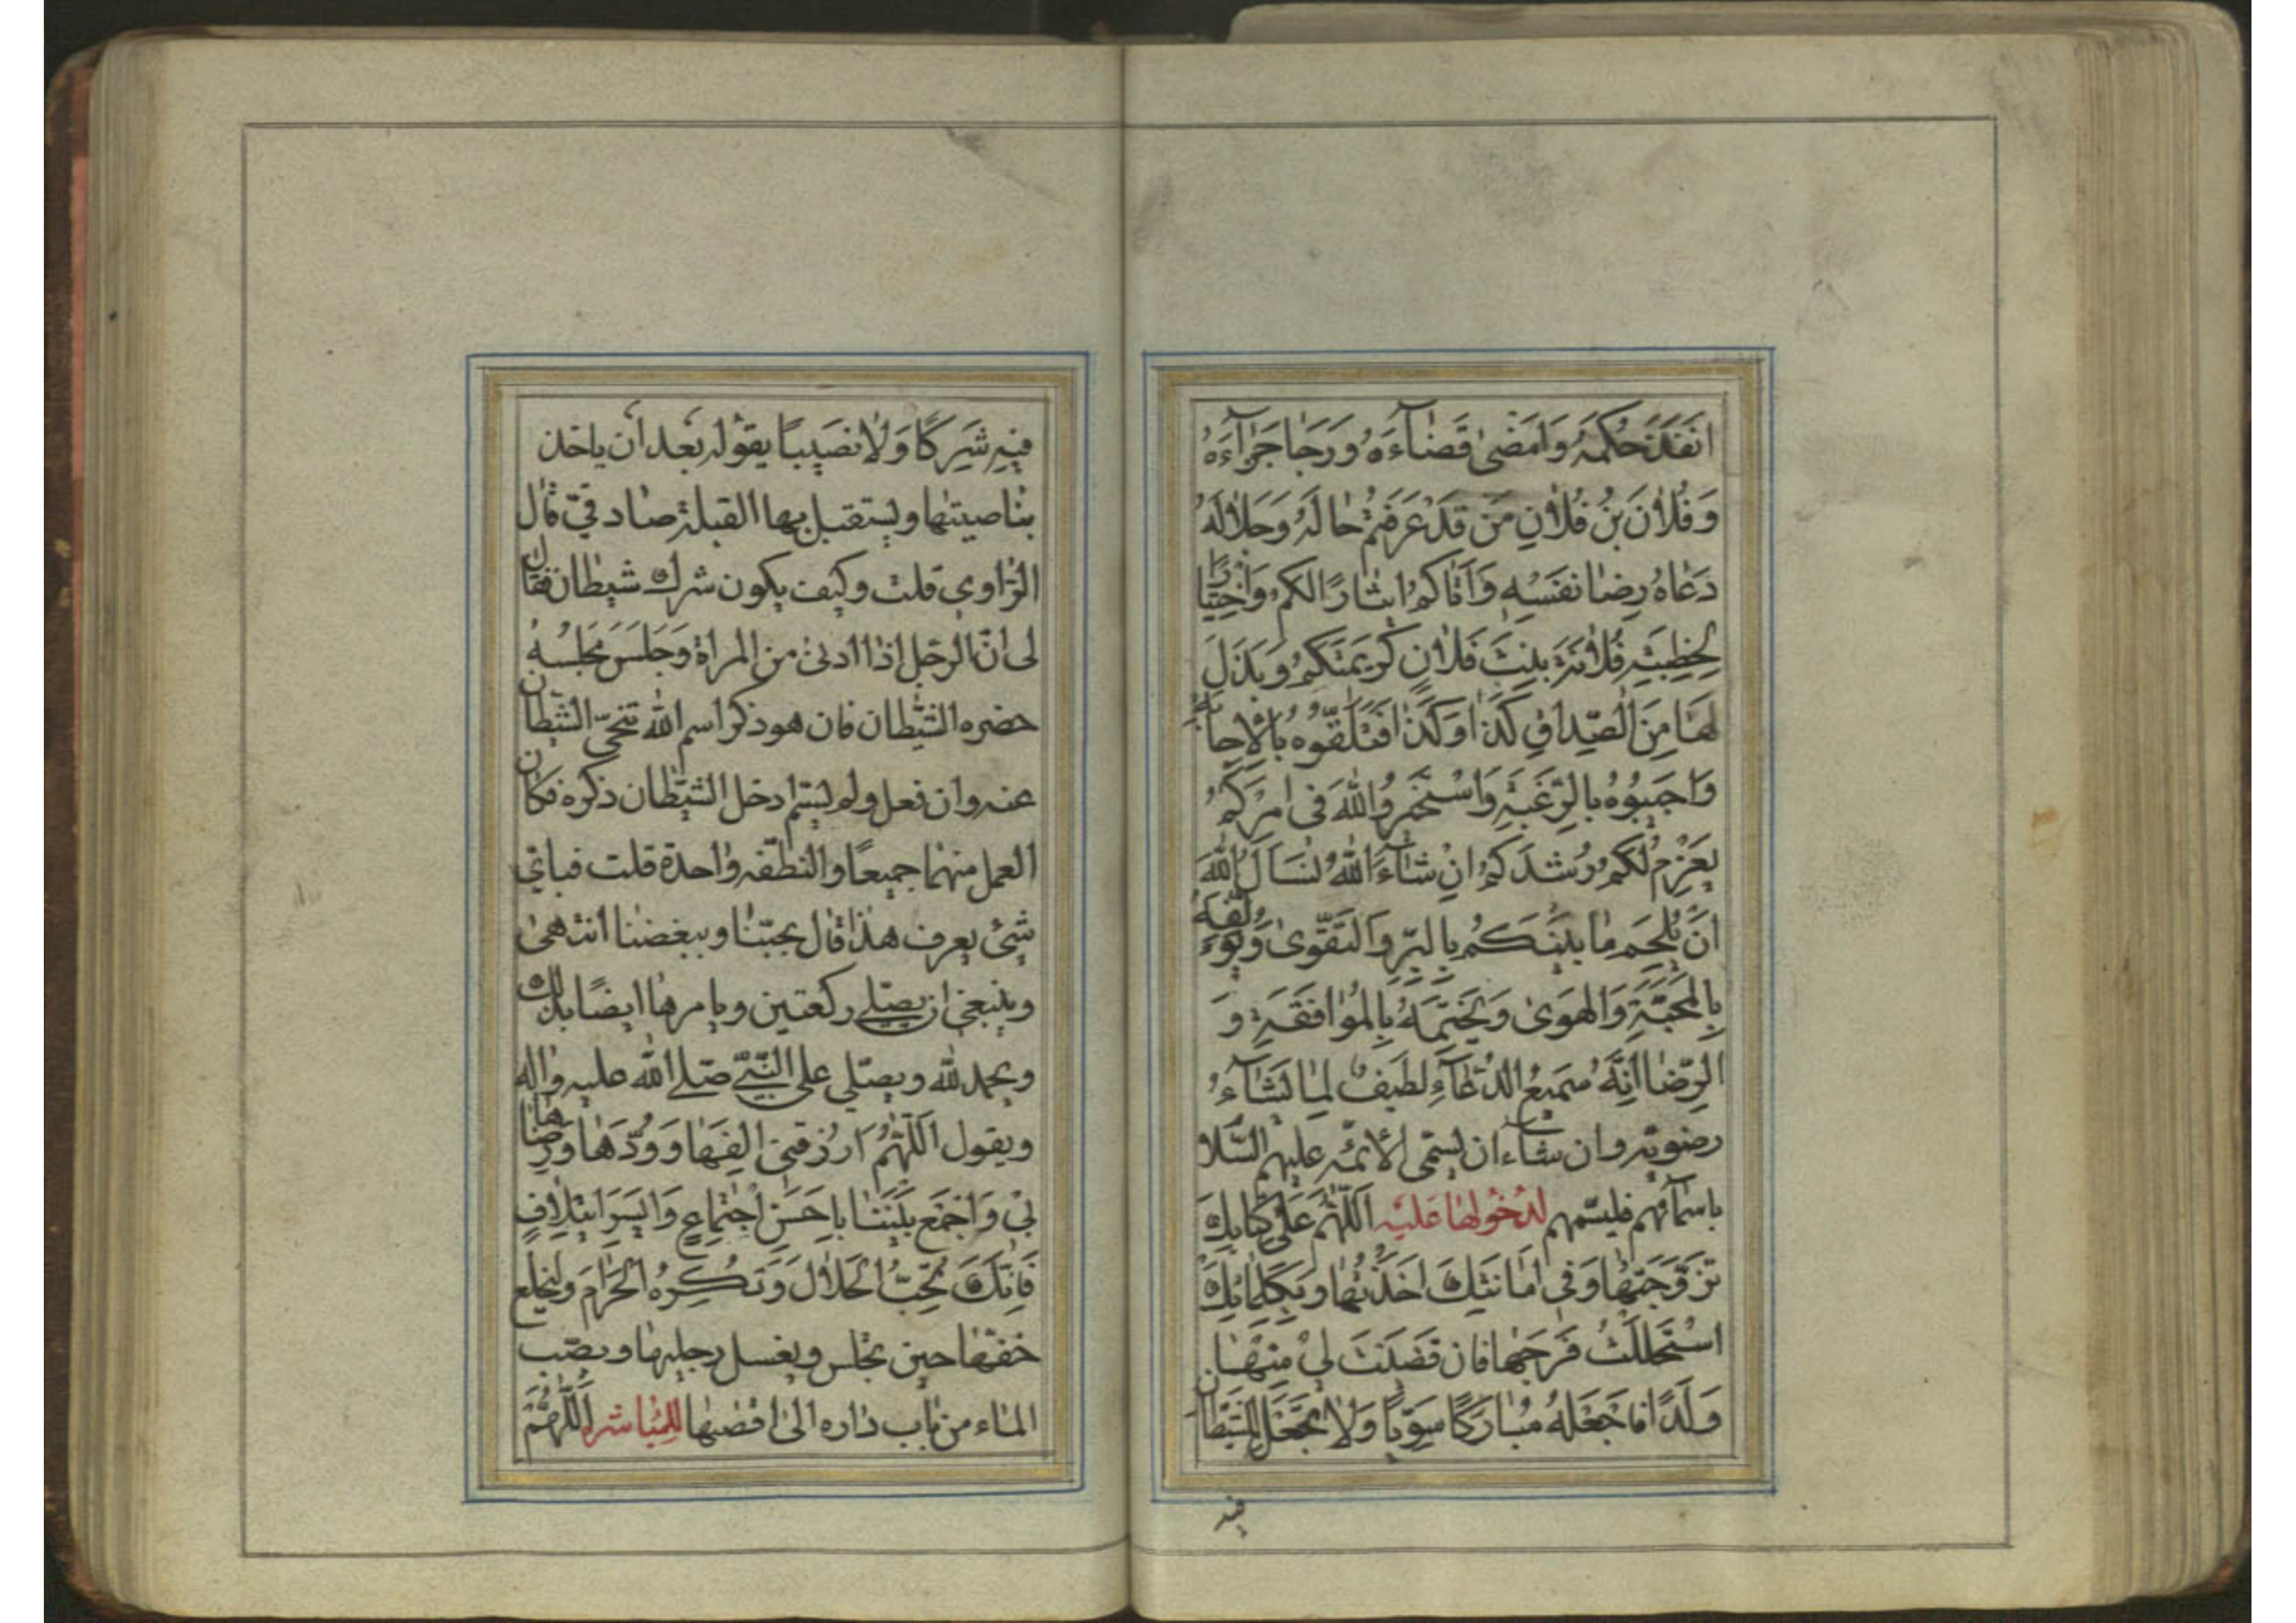 اَنْفَذَ حُكْمَهُ وَاَمْضٰى قَضٰآءَهُ وَرَجٰا جَزٰآءَهُ
وَفُلاٰنَ بْنُ فُلاٰنٍ مَنْ قَدْ عَرَفْتُمْ حٰالَهُ وَجَلاٰلَهُ
دَعٰاهُ رِضٰا نَفْسِهِ وَاَتٰاكُمْ اِيثٰارًا لَكُمْ وَاخْتِيٰارًا
لِخِطْبَةِ فُلاٰنَةَ بِنْتِ فُلاٰنٍ كَرِيمَتِكُمْ وَبَذَلَ
لَهٰا مِنَ الصِّدٰاقِ كَذٰا وَكَذٰا فَتَلَقَّوْهُ بِالْاِجٰابَةِ
وَاَجِيبُوهُ بِالرَّغْبَةِ وَاسْتَخِيرُوا اللهَ فى اَمْرِكُمْ
يَعْزِمْ لَكُمْ رُشْدَكُمْ اِنْ شٰآءَ اللهُ نَسْاَلُ اللهَ
اَنْ يُلْحِمَ مٰا بَيْنَكُمْ بِالْبِرِّ وَالتَّقْوٰى وَيُؤَلِّفَهُ
بِالْمَحَبَّةِ وَالْهَوٰى وَيَخْتِمَهُ بِالْمُوٰافَقَةِ وَ
الرِّضٰا اِنَّهُ سَمِيعُ الدُّعٰآءِ لَطِيفٌ لِمٰا يَشٰآءُ
رضويّه وان شآء ان يسمّى الأئمّه عليهم السّلا
باسمآئهم فليسمّهم لدُخُولها عَليه اَللّٰهُمَّ عَلٰى كِتٰابِكَ
تَزَوَّجْتُهٰا وَفى اَمٰانَتِكَ اَخَذْتُهٰا وَبِكَلِمٰاتِكَ
اسْتَحْلَلْتُ فَرْجَهٰا فَاِنْ قَضَيْتَ لى مِنْهٰا
وَلَدًا فَاجْعَلْهُ مُبٰارَكًا سَوِيًّا وَلاٰ تَجْعَلْ لِلشَّيْطٰانِ
فيه
فيهِ شَرِكًا وَلاٰ نَصِيبًا يقوله بعد ان ياخذ
بناصيتها ويستقبل بها القبلة صادقىّ قال
الرّاوى قلت وكيف يكون شرك شيطان فقال
لى انّ الرجل اذا ادنى من المراة وَجَلَسَ مَجْلِسَهُ
حضره الشّيطان فان هو ذكر اسم الله تنحّى الشّيطان
عنه وان فعل ولم يسمّ ادخل الشّيطان ذكره فكان
العمل منهما جميعًا والنّطفه واحدة قلت فباىّ
شئ يعرف هذا قال بحبّنا وببغضنا انتهى
وينبغى ان يصلّى ركعتين ويامرها ايضًا بذلك
ويحمد لله ويصلّى على النّبىّ صلّى الله عليه واله
ويقول اَللّٰهُمَّ ارْزُقْنى اِلْفَهٰا وَوُدَّهٰا وَرِضٰاهٰا
بى وَاجْمَعْ بَيْنَنٰا بِاَحْسَنِ اجْتِمٰاعٍ وَاَيْسَرِ ائْتِلاٰفٍ
فَاِنَّكَ تُحِبُّ الْحَلاٰلَ وَتَكْرَهُ الْحَرٰامَ وليخلع
خفّها حين تجلس ويغسل رجليها ويصبّ
المآء من باب داره الى اقصٰيها للمُباشره اَللّٰهُمَّ